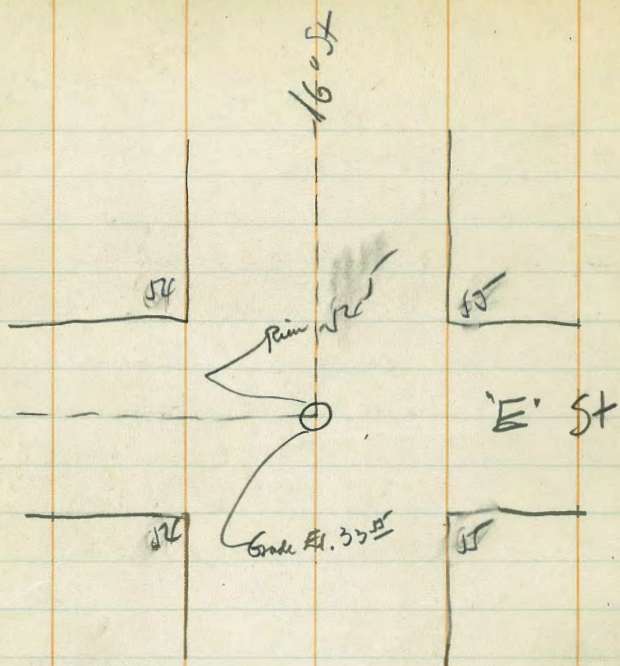 16" St
54
55
Rim 54⁵
"E" St
54
55
Grade El. 33⁵⁵